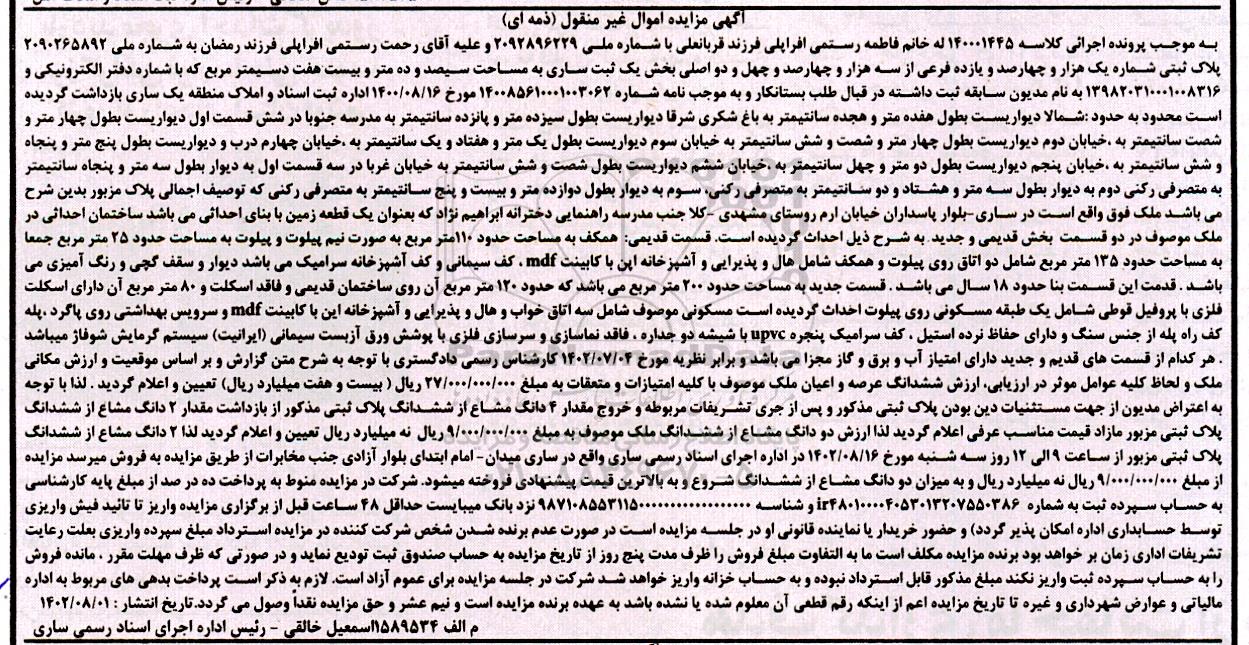 آگهی مزایده اموال غیر منقول (ذمه ای)
به موجب پرونده اجرائی کلاسه ۱۴۰۰۰۱۴۴۵ له خانم فاطمه رستمی افراپلی فرزند قربانعلی با شماره ملی ۲۰۹۲۸۹۶۲۲۹ و علیه آقای رحمت رستمی افراپلی فرزند رمضان به شماره ملی ۲۰۹۰۲۶۵۸۹۲
پلاک ثبتی شماره یک هزار و چهارصد و یازده فرعی از سه هزار و چهارصد و چهل و دو اصلی بخش یک ثبت ساری به مساحت سیصد و ده متر و بیست هفت دسیمتر مربع که با شماره دفتر الکترونیکی و
۱۳۹۸۲۰۳۱۰۰۰۱۰۰۸۳۱۶ به نام مدیون سابقه ثبت داشته در قبال طلب بستانکار و به موجب نامه شماره ۱۴۰۰۸۵۶۱۰۰۰۱۰۰۳۰۶۲ مورخ ۱۴۰۰/۰۸/۱۶ اداره ثبت اسناد و املاک منطقه یک ساری بازداشت گردیده
است محدود به حدود :شمالا دیواریست بطول هفده متر و هجده سانتیمتر به باغ شکری شرقا دیواریست بطول سیزده متر و پانزده سانتیمتر به مدرسه جنوبا در شش قسمت اول دیواریست بطول چهار متر و
شصت سانتیمتر به ،خیابان دوم دیواریست بطول چهار متر و شصت و شش سانتیمتر به خیابان سوم دیواریست بطول یک متر و هفتاد و یک سانتیمتر به ،خیابان چهارم درب و دیواریست بطول پنج متر و پنجاه
و شش سانتیمتر به ،خیابان پنجم دیواریست بطول دو متر و چهل سانتیمتر به ،خیابان ششم دیواریست بطول شصت و شش سانتیمتر به خیابان غربا در سه قسمت اول به دیوار بطول سه متر و پنجاه سانتیمتر
به متصرفی رکنی دوم به دیوار بطول سه متر و هشتاد و دو سانتیمتر به متصرفی رکنی، سوم به دیوار بطول دوازده متر و بیست و پنج سانتیمتر به متصرفی رکنی که توصیف اجمالی پلاک مزبور بدین شرح
می باشد ملک فوق واقع است در ساری-بلوار پاسداران خیابان ارم روستای مشهدی -کلا جنب مدرسه راهنمایی دخترانه ابراهیم نژاد که بعنوان یک قطعه زمین با بنای احداثی می باشد ساختمان احداثی در
ملک موصوف در دو قسمت بخش قدیمی و جدید به شرح ذیل احداث گردیده است. قسمت قدیمی: همکف به مساحت حدود ۱۱۰متر مربع به صورت نیم پیلوت و پیلوت به مساحت حدود ۲۵ متر مربع جمعا
به مساحت حدود ۱۳۵ متر مربع شامل دو اتاق روی پیلوت و همکف شامل هال و پذیرایی و آشپزخانه اپن با کابینت mdf ، کف سیمانی و کف آشپزخانه سرامیک می باشد دیوار و سقف گچی و رنگ آمیزی می
باشد . قدمت این قسمت بنا حدود ۱۸ سال می باشد . قسمت جدید به مساحت حدود ۲۰۰ متر مربع می باشد که حدود ۱۲۰ متر مربع آن روی ساختمان قدیمی و فاقد اسکلت و ۸۰ متر مربع آن دارای اسکلت
فلزی با پروفیل قوطی شامل یک طبقه مسکونی روی پیلوت احداث گردیده است مسکونی موصوف شامل سه اتاق خواب و هال و پذیرایی و آشپزخانه اپن با کابینت mdf و سرویس بهداشتی روی پاگرد ،پله
کف راه پله از جنس سنگ و دارای حفاظ نرده استیل ، کف سرامیک پنجره upvc با شیشه دو جداره ، فاقد نماسازی و سرسازی فلزی با پوشش ورق آزبست سیمانی (ایرانیت) سیستم گرمایش شوفاژ میباشد
. هر کدام از قسمت های قدیم و جدید دارای امتیاز آب و برق و گاز مجزا می باشد و برابر نظریه مورخ ۱۴۰۲/۰۷/۰۴ کارشناس رسمی دادگستری با توجه به شرح متن گزارش و بر اساس موقعیت و ارزش مکانی
ملک و لحاظ کلیه عوامل موثر در ارزیابی، ارزش ششدانگ عرصه و اعیان ملک موصوف با کلیه امتیازات و متعلقات به مبلغ ۲۷/۰۰۰/۰۰۰/۰۰۰ ریال ( بیست و هفت میلیارد ریال) تعیین و اعلام گردید . لذا با توجه
به اعتراض مدیون از جهت مستثنیات دین بودن پلاک ثبتی مذکور و پس از جری تشریفات مربوطه و خروج مقدار ۴ دانگ مشاع از ششدانگ پلاک ثبتی مذکور از بازداشت مقدار ۲ دانگ مشاع از ششدانگ
پلاک ثبتی مزبور مازاد قیمت مناسب عرفی اعلام گردید لذا ارزش دو دانگ مشاع از ششدانگ ملک موصوف به مبلغ ۹/۰۰۰/۰۰۰/۰۰۰ ریال نه میلیارد ریال تعیین و اعلام گردید لذا ۲ دانگ مشاع از ششدانگ
پلاک ثبتی مزبور از ساعت ۹ الی ۱۲ روز سه شنبه مورخ ۱۴۰۲/۰۸/۱۶ در اداره اجرای اسناد رسمی ساری واقع در ساری میدان- امام ابتدای بلوار آزادی جنب مخابرات از طریق مزایده به فروش میرسد مزایده
از مبلغ ۹/۰۰۰/۰۰۰/۰۰۰ ریال نه میلیارد ریال و به میزان دو دانگ مشاع از ششدانگ شروع و به بالاترین قیمت پیشنهادی فروخته میشود. شرکت در مزایده منوط به پرداخت ده در صد از مبلغ پایه کارشناسی
به حساب سپرده ثبت به شماره و شناسه نزد بانک میبایست حداقل ۴۸ ساعت قبل از برگزاری مزایده واریز تا تائید فیش واریزی
توسط حسابداری اداره امکان پذیر گردد) و حضور خریدار یا نماینده قانونی او در جلسه مزایده است در صورت عدم برنده شدن شخص شرکت کننده در مزایده استرداد مبلغ سپرده واریزی بعلت رعایت
تشریفات اداری زمان بر خواهد بود برنده مزایده مکلف است ما به التفاوت مبلغ فروش را ظرف مدت پنج روز از تاریخ مزایده به حساب صندوق ثبت تودیع نماید و در صورتی که ظرف مهلت مقرر ، مانده فروش
را به حساب سپرده ثبت واریز نکند مبلغ مذکور قابل استرداد نبوده و به حساب خزانه واریز خواهد شد شرکت در جلسه مزایده برای عموم آزاد است. لازم به ذکر است پرداخت بدهی های مربوط به اداره
مالیاتی و عوارض شهرداری و غیره تا تاریخ مزایده اعم از اینکه رقم قطعی آن معلوم شده یا نشده باشد به عهده برنده مزایده است و نیم عشر و حق مزایده نقداً وصول می گردد.تاریخ انتشار : ۱۴۰۲/۰۸/۰۱
م الف ۱۵۸۹۵۳۴ اسمعیل خالقی - رئیس اداره اجرای اسناد رسمی ساری